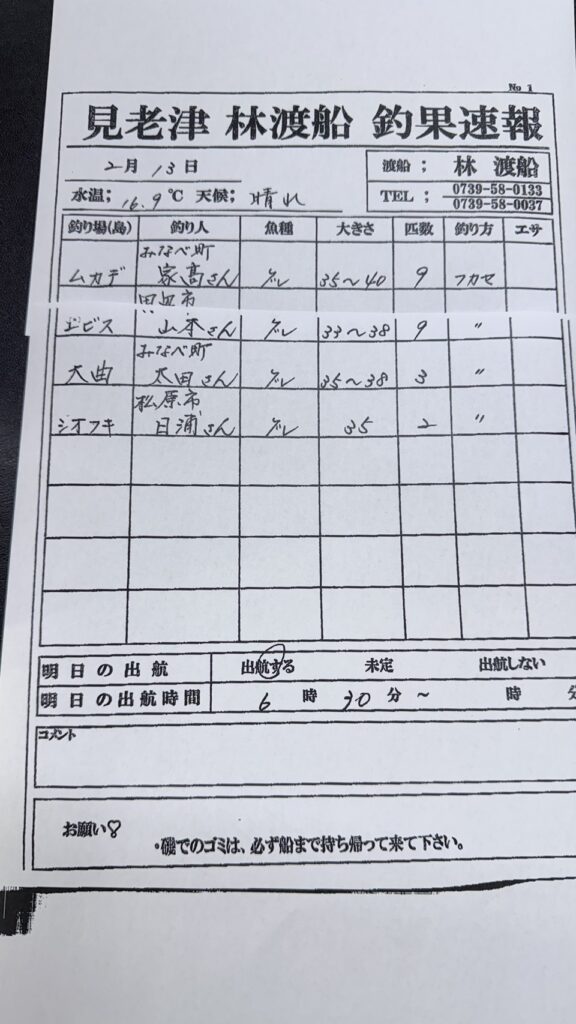 No 1
見老津 林渡船 釣果速報
2月 13日
渡船； 林 渡船
水温； 16.9℃ 天候； 晴れ
TEL； 0739-58-0133
0739-58-0037
釣り場(島) 釣り人 魚種 大きさ 匹数 釣り方 エサ
みなべ町
ムカデ 家高さん グレ 35～40 9 フカセ
田辺市
エビス 山本さん グレ 33～38 9 〃
みなべ町
大曲 太田さん グレ 35～38 3 〃
松原市
シオフキ 日浦さん グレ 35 2 〃
明日の出航 出航する 未定 出航しない
明日の出航時間 6 時 30 分 ～ 時 分
コメント
お願い♡
・磯でのゴミは、必ず船まで持ち帰って来て下さい。